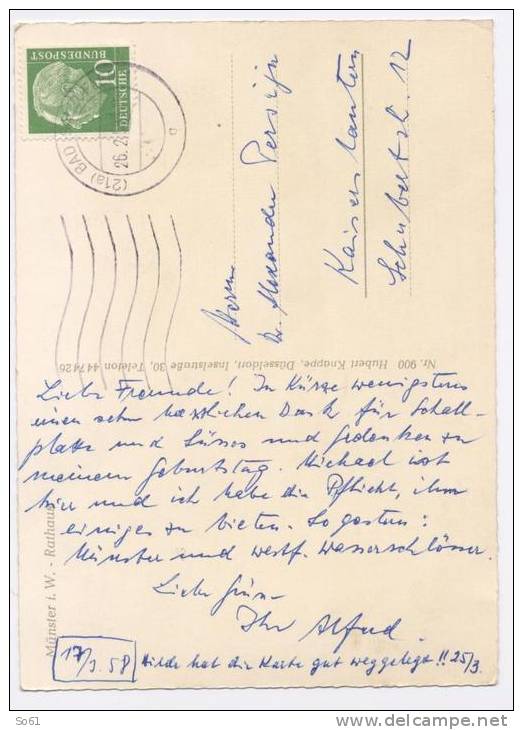 10
DEUTSCHE
BUNDESPOST
(21a) BAD
26.2
Herrn
Dr. Alexander Persijn
Kaiserslautern
Schubertstr. 12
Nr. 900 Hubert Knappe, Düsseldorf, Inselstraße 30, Telefon 447426
Münster i. W. - Rathaus
Liebe Freunde! In Kürze wenigstens
einen sehr herzlichen Dank für Schall-
platte und Süsses und Gedenken zu
meinem Geburtstag. Michael ist
hier und ich habe die Pflicht, ihm
einiges zu bieten. So gestern:
Münster und westf. Wasserschlösser.
Liebe Grüsse
Ihr Alfred.
17/3. 58 Hilde hat die Karte gut weggelegt!! 25/3.
So61
delcampe.net